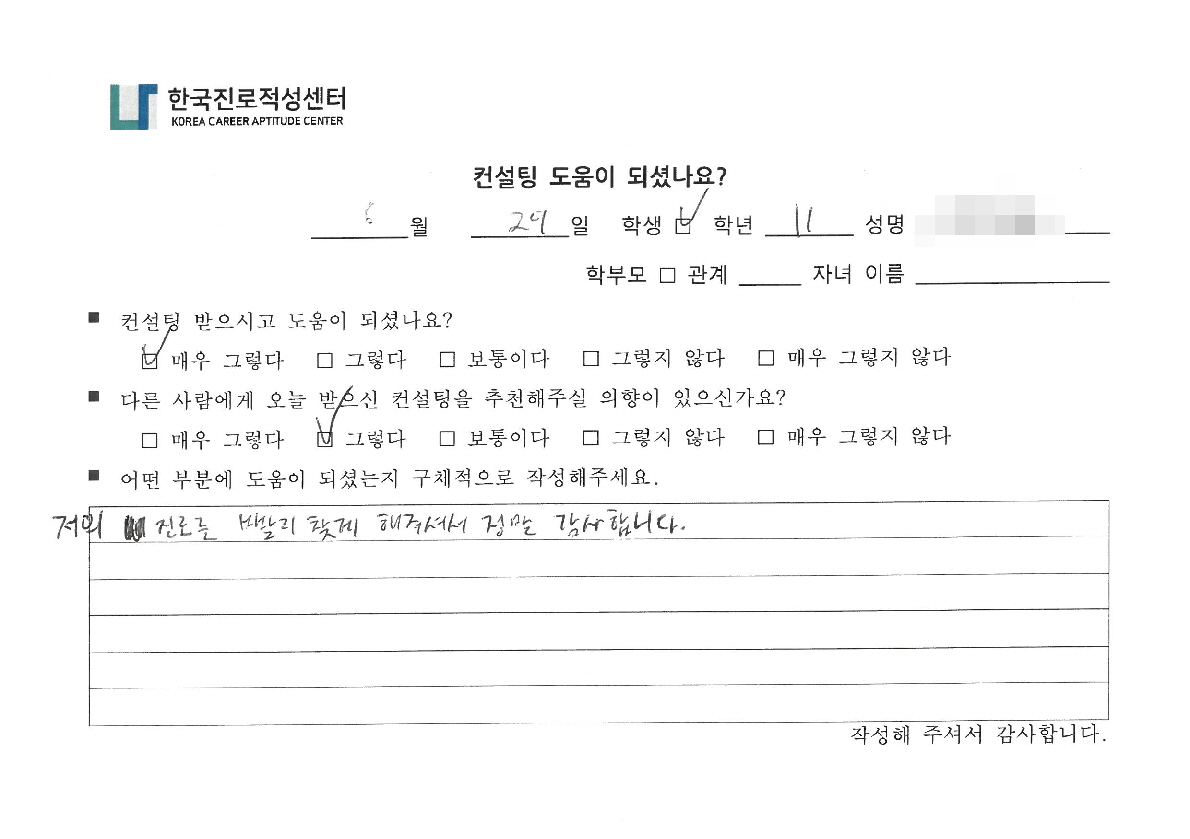 한국진로적성센터
KOREA CAREER APTITUDE CENTER
컨설팅 도움이 되셨나요?
월 29 일 학생 ☑ 학년 11 성명
학부모 □ 관계 자녀 이름
■ 컨설팅 받으시고 도움이 되셨나요?
☑ 매우 그렇다 □ 그렇다 □ 보통이다 □ 그렇지 않다 □ 매우 그렇지 않다
■ 다른 사람에게 오늘 받으신 컨설팅을 추천해주실 의향이 있으신가요?
□ 매우 그렇다 ☑ 그렇다 □ 보통이다 □ 그렇지 않다 □ 매우 그렇지 않다
■ 어떤 부분에 도움이 되셨는지 구체적으로 작성해주세요.
저의 진로를 빨리 찾게 해주셔서 정말 감사합니다.
작성해 주셔서 감사합니다.